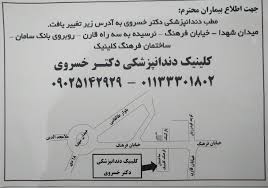 جهت اطلاع بیماران محترم:
مطب دندانپزشکی دکتر خسروی به آدرس زیر تغییر یافت.
میدان شهدا - خیابان فرهنگ - نرسیده به سه راه قارن - روبروی بانک سامان -
ساختمان فرهنگ کلینیک
کلینیک دندانپزشکی دکتر خسروی
۰۱۱۳۳۳۰۱۸۰۲ - ۰۹۰۲۵۱۴۲۹۲۹
خیابان فرهنگ
خیابان فرهنگ
کلینیک دندانپزشکی
دکتر خسروی